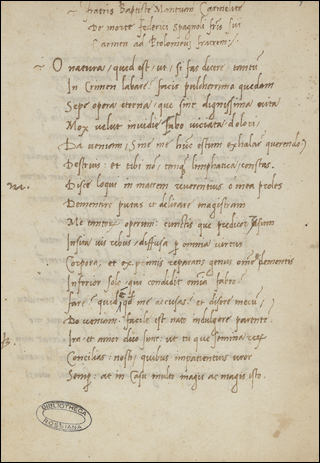 fratris Baptiste Mantuani Carmelite
De morte federici Spagnoli fris sui
Carmen ad Ptolomeum fratrem
O natura, quid est, ut, si fas dicere, tantum
In Crimen labare? facis pulcherrima quedam
Sepe opera eterna, que sint dignissima vita
Mox velut invidie stabo viciata dolori,
Da veniam, (sine me hunc ostum exhalare querendo)
Destruis: et tibi non, tanquam limphatica, constas.
Na. Disce loqui in matrem reverentius o mea proles
Dementire putas et delirare magistram
Me tantorum operum: cunctis que predicor ipsum
Insita vis rebus, diffusa per omnia virtus
Corpora, et ex pennis reparans genus omne
Inferior solo, qui condidit omnia fabro
fare, quid est quod me accusas? et differe mecum,
Do veniam: facile est nato indulgere parenti.
Ira et amor duo sunt: ut tu que semina rerum
Concilias: nosti, quibus impatientius uror
Semper: at in Casu multi magis ac magis isto.
BIBLIOTHECA
ROSSIANA